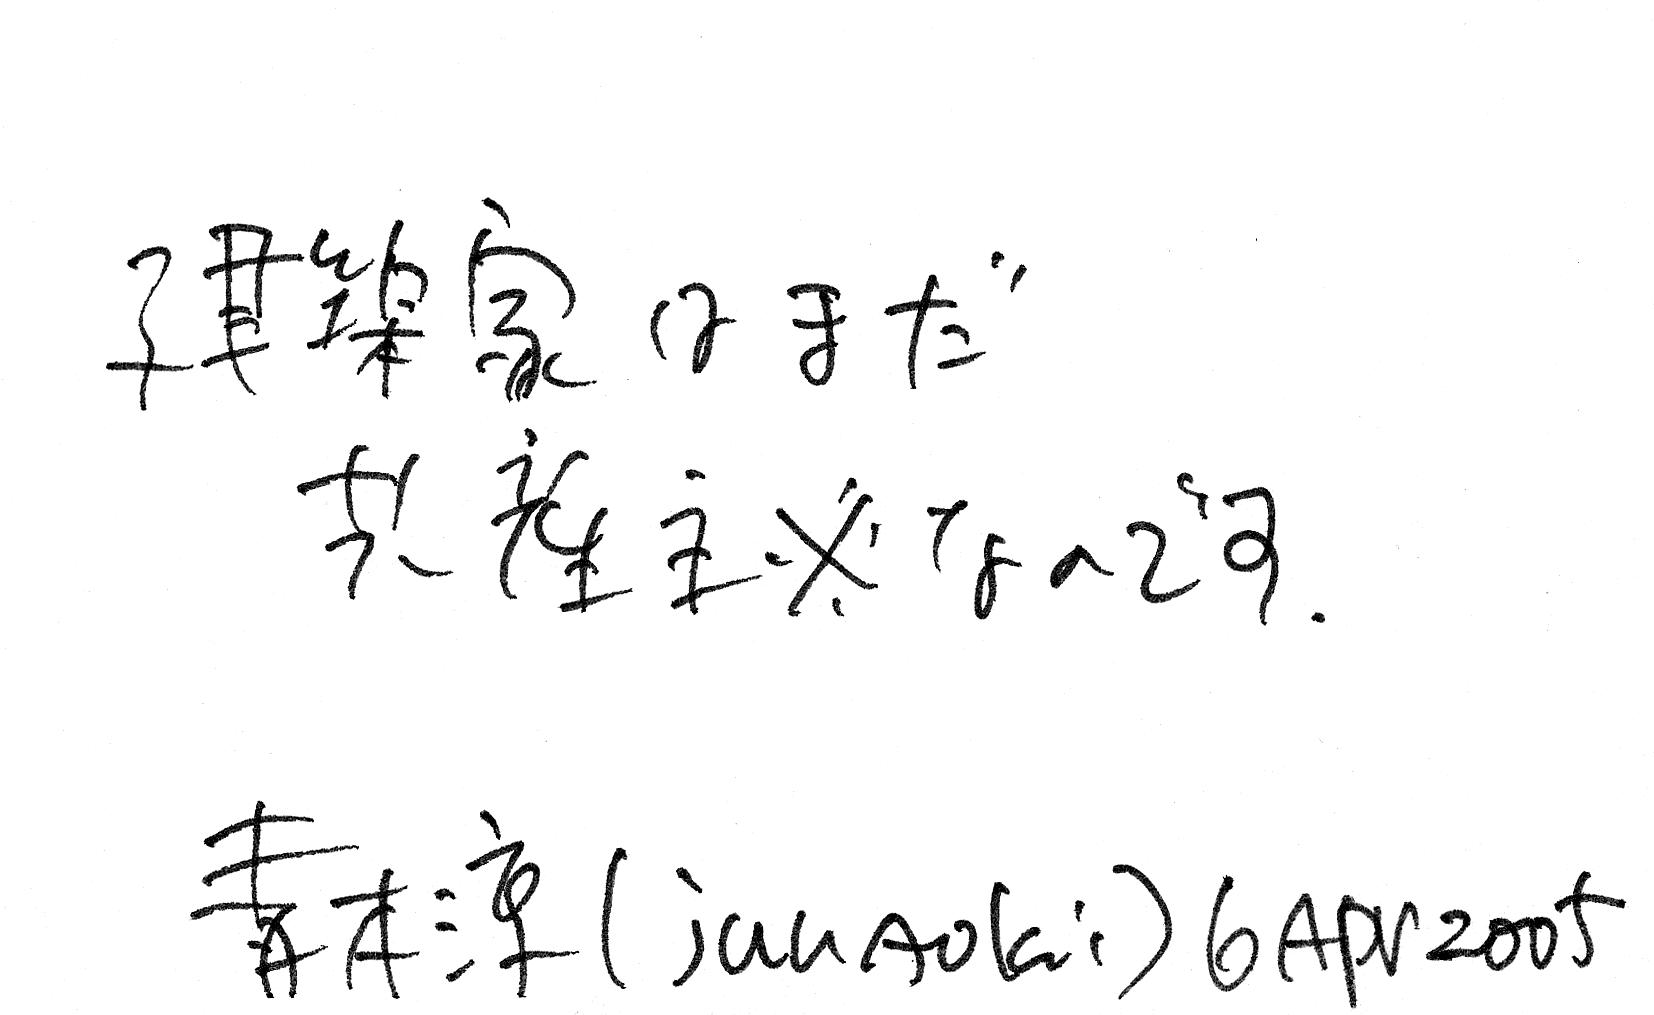 建築家はまだ
なのです.
青木淳 (jun Aoki) 6 Apr 2005